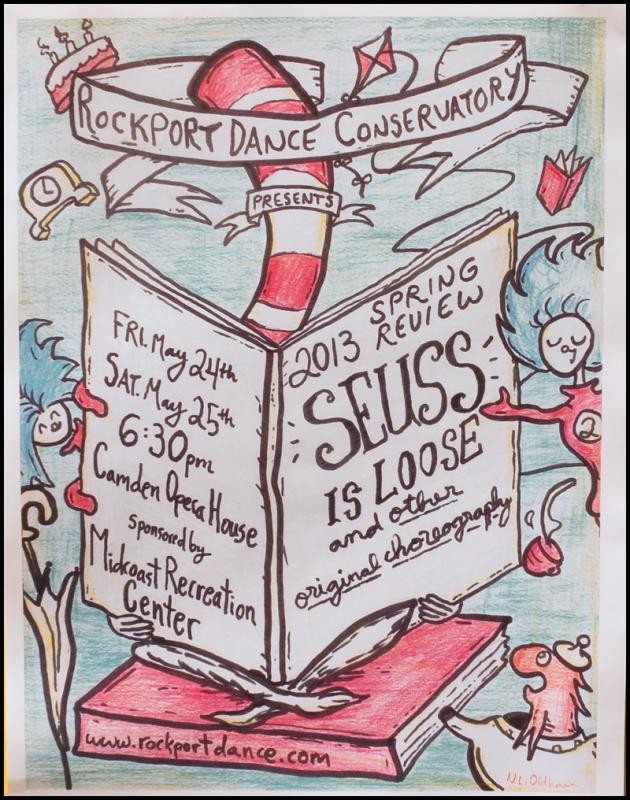 ROCKPORT DANCE CONSERVATORY
PRESENTS
FRI. May 24th
SAT. May 25th
6:30pm
Camden Opera House
sponsored by
Midcoast Recreation
Center
2013 SPRING
REVIEW
SEUSS
IS LOOSE
and other
original choreography
2
www.rockportdance.com
N.L. Oldham